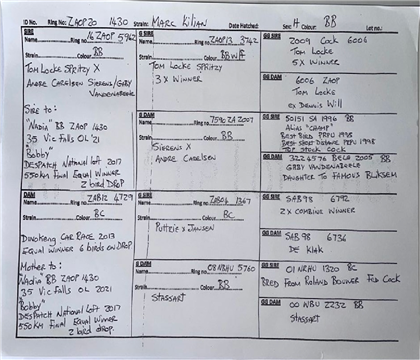 ID No. Ring No: ZAOP20 1430 Strain: MARC KILIAN Date Hatched: Sex: H Colour: BB Lot no:
SIRE
Name Ring no: 16 ZAOP 5962
Strain Colour BB
TOM LOCKE SPRITZY X
ANDRE CARELSEN SIERENS/GABY
VANDENABEELE
SIRE TO:
"NADIA" BB ZAOP 1430
35 VIC FALLS OL '21
"BOBBY"
DESPATCH NATIONAL LOFT 2017
550KM FINAL EQUAL WINNER
2 BIRD DROP
DAM
Name Ring no: ZAB12 4729
Strain Colour BC
DINOKENG CAR RACE 2013
EQUAL WINNER 6 BIRDS ON DROP
MOTHER TO:
NADIA BB ZAOP 1430
35 VIC FALLS OL 2021
"BOBBY"
DESPATCH NATIONAL LOFT 2017
550 KM FINAL EQUAL WINNER
2 BIRD DROP.
G SIRE
Name Ring no: ZAOP13 3742
Strain Colour BBWF
TOM LOCKE SPRITZY
3 X WINNER
G DAM
Name Ring no: 7596 ZA 2007
Strain Colour BB
SIERENS X
ANDRE CARELSEN
G SIRE
Name Ring no: ZAB06 1367
Strain Colour BC
PUTTRIE X JANSEN
G DAM
Name Ring no: 08 NRHU 5760
Strain Colour BB
STASSART
GG SIRE
2009 COCK 6006
TOM LOCKE
5 X WINNER
GG DAM
6006 ZAOP
TOM LOCKE
EX DENNIS WILL
GG SIRE 50151 SA 1996 BB
ALIAS "CHAMP"
BEST BIRD PRPU 1998
BEST SHORT DISTANCE PRPU 1998
TOP STOCK COCK
GG DAM 3224576 BELG 2005 BB
GABY VANDENABEELE
DAUGHTER TO FAMOUS BLIKSEM
GG SIRE SAB 98 6792
2 X COMBINE WINNER
GG DAM SAB 98 6736
DE KLAK
GG SIRE 01 NRHU 1320 BC
BRED FROM ROLAND BOUWER FED COCK
GG DAM 00 WBU 2232 BB
STASSART